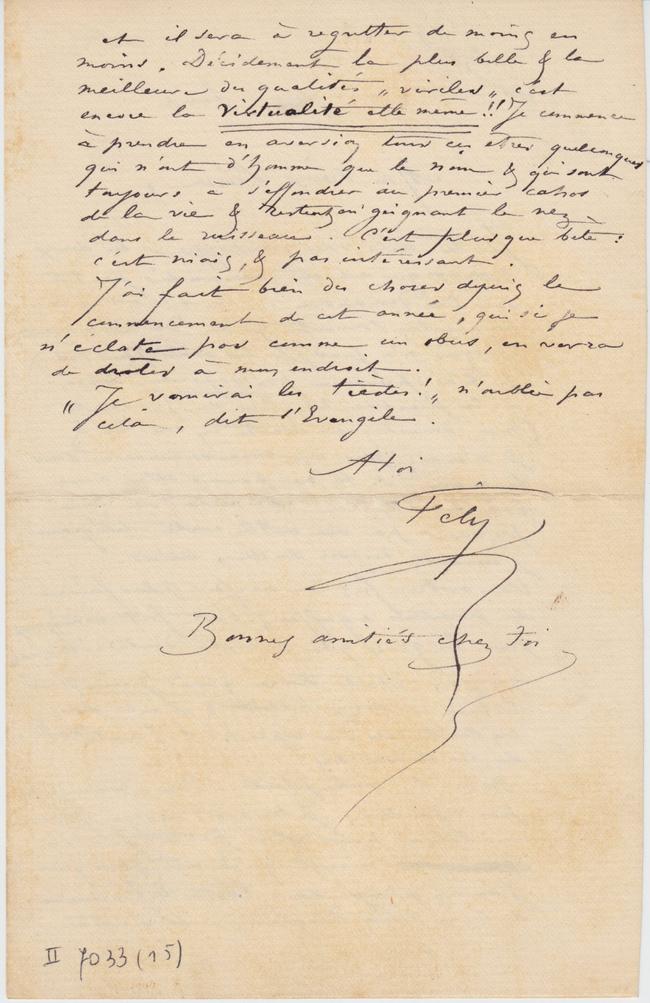 et il sera à regretter de moins en
moins. Décidément la plus belle & la
meilleure des qualités „viriles„ c'est
encore la virtualité elle même!! Je commence
à prendre en aversion tous ces êtres quelconques
qui n'ont d'homme que le nom & qui sont
toujours à s'effondrer au premier cahos
de la vie & restent en geignant le nez
dans le ruisseau. C'est plus que bête:
c'est niais, & pas intéressant.
J'ai fait bien des choses depuis le
commencement de cet année, qui si je
n'éclate pas comme un obus, en verra
de drôles à mon endroit.
"Je vomirai les tièdes!„ n'oublie pas
celà, dit l'Evangile.
A toi
Fély
Bonnes amitiés chez toi
II 7033 (15)